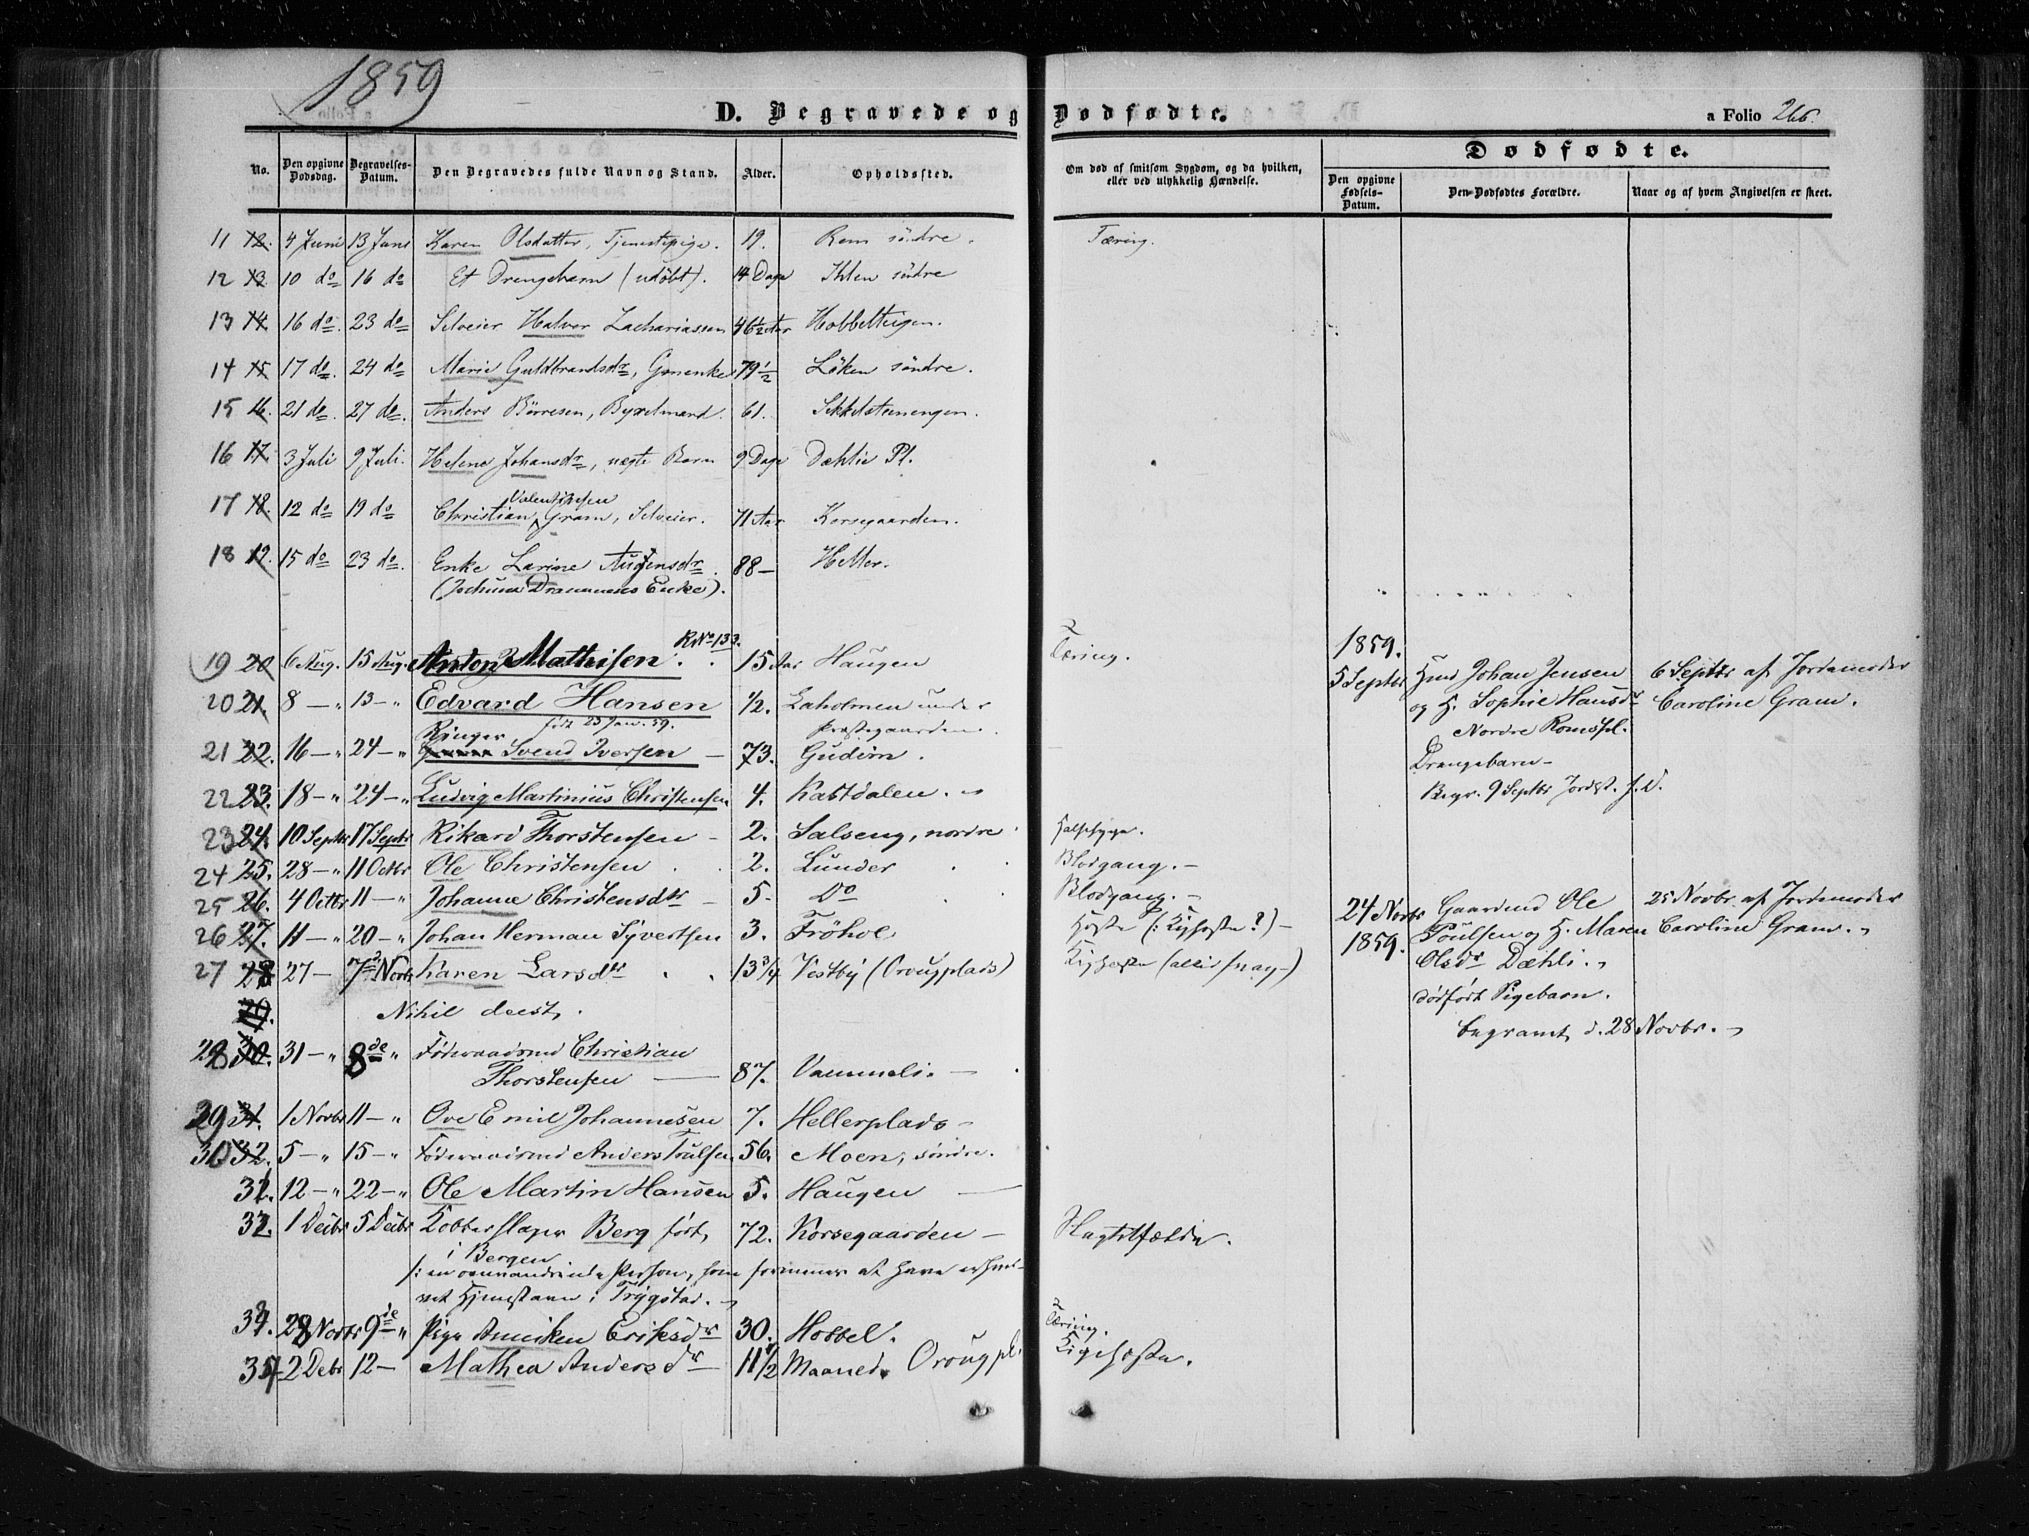 1859
D. Begravede og Dødfødte.
a Folio 266.
No. Den opgivne Dødsdag. Begravelses-Datum. Den Begravedes fulde Navn og Stand. Alder. Opholdssted. Om død af smitsom Sygdom, og da hvilken, eller ved ulykkelig Hændelse. Dødfødte.
Den opgivne Fødsels-Datum. Den Dødfødtes Forældre. Naar og af hvem Angivelsen er skeet.
11 12. 4 Juni 13 Juni Karen Olsdatter, Tjenestepige. 19. Rom söndre. Tæring.
12 13. 10 do 16 do Et Drengebarn (udöbt). 14 Dage Ihlen söndre
13 14. 16 do. 23 do Selveier Halvor Zachariassen 46½ Aar Hobbelhagen.
14 15. 17 do. 24 do Marie Guldbrandsdr, Gmenke 79½ Löken söndre.
15 16. 21 do 27 do. Anders Börresen, Byxelmand. 61. Sikkelsteenengen.
16 17. 3 Juli 9 Juli. Helene Johansdr, uægte Barn 9 Dage Dæhlie Pl.
17 18. 12 do 19 do Christian Valentinsen Gram, Selveier. 71 Aar Korsegaarden.
18 19. 15 do 23 do. Enke Larine Augensdr. 88 — Heller.
(Jochum Drammens Enke).
R No 133.
19 20 6 Aug. 15 Aug. Anton Mathisen. 15 Aar Haugen Tæring.
20 21. 8 — " 13 — " Edvard Hansen ½. Laholmen under
født 23 Jan. 59. Præstegaarden.
21 22. 16 — " 24 — " Ringer Svend Iversen — 73. Gudim.
22 23. 18 — " 24 — " Ludvig Martinius Christensen 4. Kastdalen.
23 24. 10 Septbr 17 Septr Rikard Thorstensen — 2. Salseng, nordre Halssyge.
24 25. 28 — " 11 Octbr Ole Christensen 2. Lunder Blodgang. —
25 26. 4 Octbr 11 — " Johanne Christensdtr — 5. Do Blodgang. —
26 27. 11 — " 20 — " Johan Herman Syvertsen 3. Fröhol Hoste (: Kighoste?) —
27 28 27 — 7de Novb Karen Larsdtr 13 3/4 Vestby (Orougplads) Kighoste
29. Nihil deest,
28 30. 31 — " 8de " Föderaadsmd Christian
Thorstensen — 87. Vammeli. —
29 31. 1 Novbr 11 — " Ove Emil Johannesen 7. Hellerplads —
30 32. 5 — " 15 — " Föderaadsmd Anders Poulsen 56. Moen, söndre.
31. 12 — " 22 — " Ole Martin Hansen 5. Haugen —
32. 1 Decbr 5 Decbr Kobberslager Berg født, 72. Korsegaarden — Slagtilfælde.
i Bergen
/: en omvandrende Person, som formener at have erhver-
vet Hjemstavn i Trygstad.
33. 28 Novbr 9de " Pige Anniken Eriksdr 30. Hobbel. Tæring.
34 2 Debr 12 — Mathea Andersdr — 11½ Maaned. Orougpl. Kighoste.
1859.
5 Septbr Husmd Johan Jensen 6 Septbr af Jordemoder
og H. Sophie Hansdr Caroline Gram.
Nordre Romspl.
Drengebarn —
Begr. 9 Septbr Jordst. f. D.
24 Novbr 1859. Gaardmd Ole 25 Novbr. af Jordemoder
Poulsen og H. Maren Caroline Gram.
Olsdr Dæhli.
dödfödt Pigebarn.
begravet d. 28 Novbr.